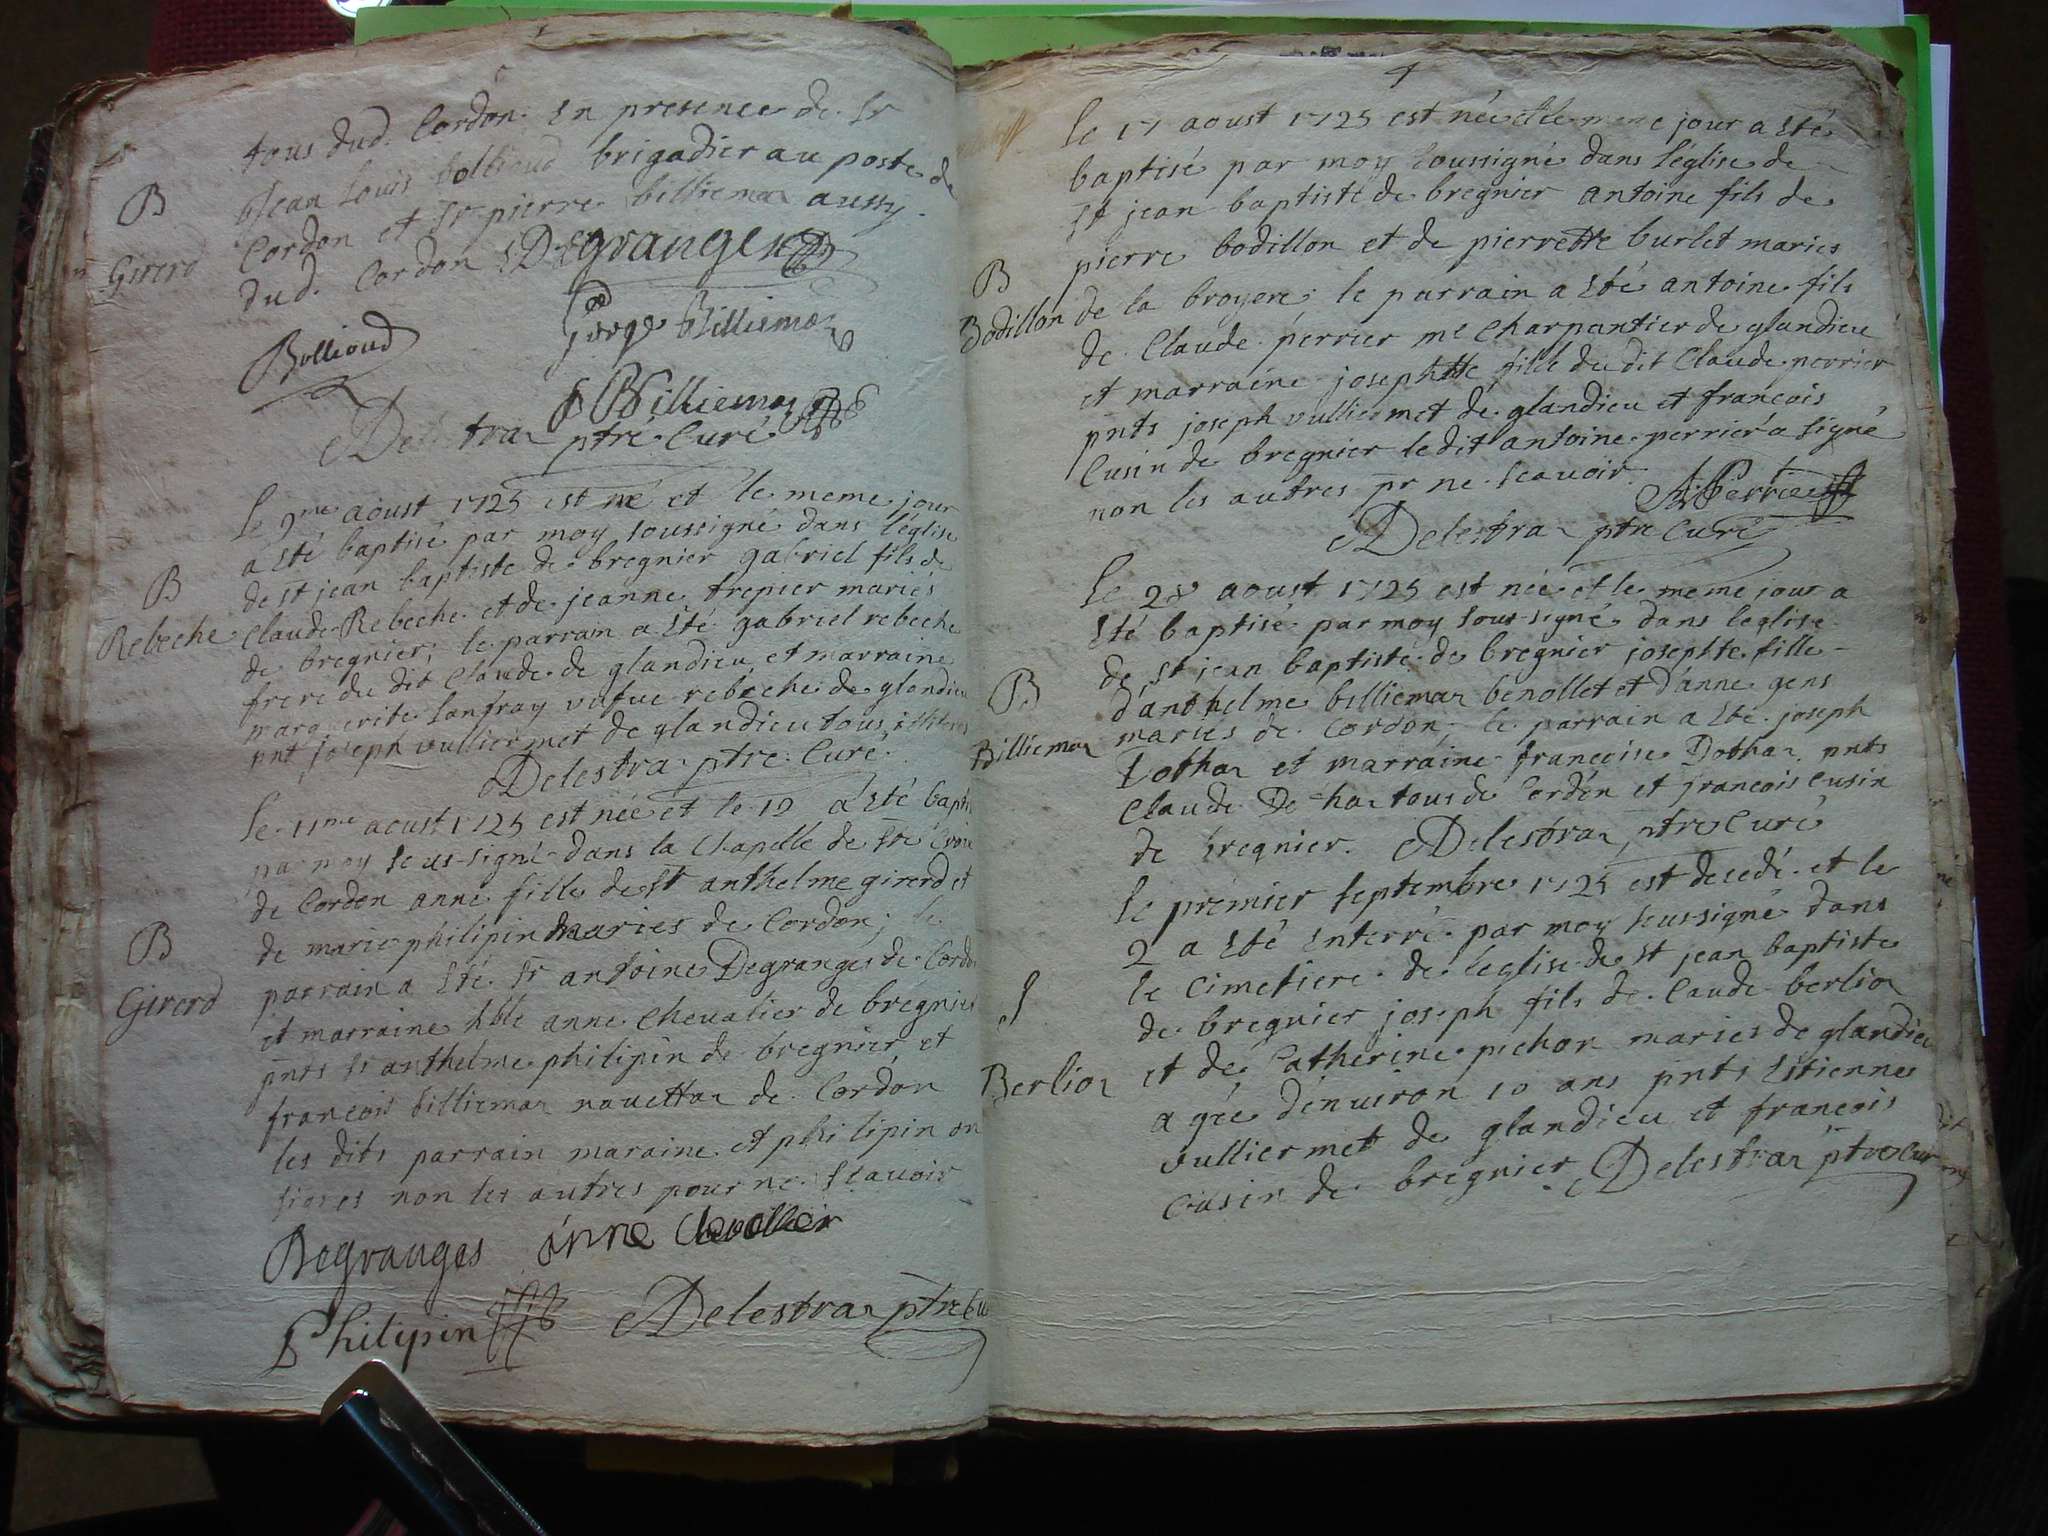 tous dud. Cordon. En presence de Sr
B
Jean Louis Bollioud brigadier au poste de
Girerd
Cordon et Sr pierre billiemaz aussy
dud. Cordon Degranges
george Billiemaz
Bollioud
Billiemaz
Delestraz ptre Curé
Le 9me aoust 1725 est né et le meme jour
a Eté baptisé par moy soussigné dans l'église
B
de st jean baptiste de bregnier gabriel fils de
Rebeche
Claude Rebeche et de jeanne trepier mariés
de bregnier; le parrain a Eté gabriel rebeche
frere du dit Claude de glandieu et marraine
marguerite Lanfray vefue rebeche de glandieu
pnt joseph vulliermet de glandieu tous
Delestraz ptre Curé
Le 11me aoust 1725 est née et le 12 a Eté bapti
par moy sous-signé dans la Chapelle de Ste Croix
de Cordon anne fille de Sr anthelme girerd et
B
de marie philipin maries de Cordon; le
Girerd
parrain a Eté Sr antoine Degranges de Cordon
et marraine hble anne Chevalier de bregnier
pnts Sr anthelme philipin de bregnier et
francois billiemaz navettaz de Cordon
les dits parrain maraine et philipin on
signes non les autres pour ne scavoir
Degranges anne Chevallier
Philipin Delestraz ptre Cu
4
Le 17 aoust 1725 est née et le meme jour a Eté
baptisé par moy soussigné dans l'église de
st jean baptiste de bregnier antoine fils de
B
pierre bodillon et de pierrette burlet maries
Bodillon
de la broyere; le parrain a Eté antoine fils
de Claude perrier me Charpantier de glandieu
et marraine josephtte fille du dit Claude perrier
pnts joseph vulliermet de glandieu et francois
Cusin de bregnier le dit antoine perrier a signé
non les autres pr ne scavoir.
A Perrier
Delestraz ptre Curé
Le 28 aoust 1725 est née et le meme jour a
Eté baptisé par moy sous-signé dans leglise
B
de st jean baptiste de bregnier josephte fille
d'anthelme billiemaz benollet et d'anne gens
Billiemaz
maries de Cordon; le parrain a Eté joseph
Dothaz et marraine francoise Dothaz pnts
Claude Dothaz tous de Cordon et francois Cusin
de bregnier. Delestraz ptre Curé
Le premier septembre 1725 est decedé et le
2 a Eté Enterré par moy soussigné dans
le Cimetiere de leglise de st jean baptiste
S
de bregnier joseph fils de Claude berlioz
Berlioz
et de Catherine pichoz maries de glandieu
agée d'enuiron 10 ans pnts Estienne
vulliermet de glandieu et francois
Cusin de bregnier. Delestraz ptre Cur